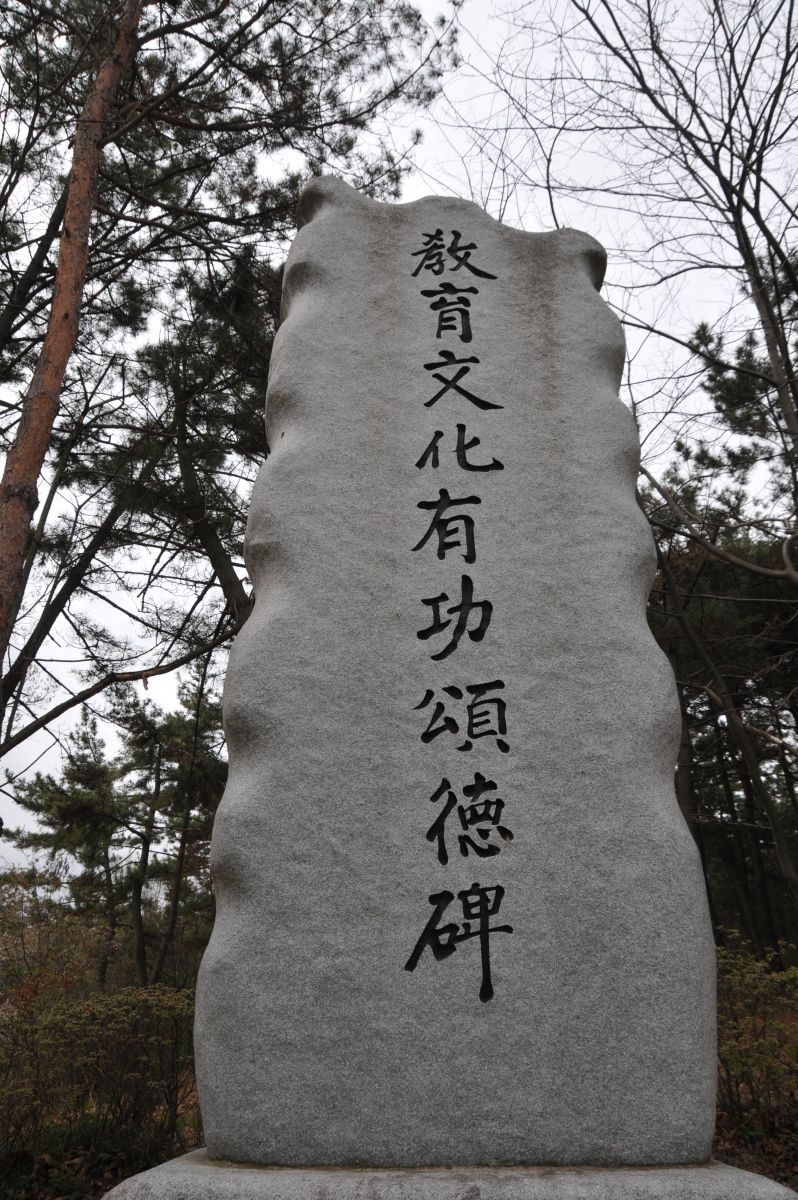 教育文化有功頌德碑